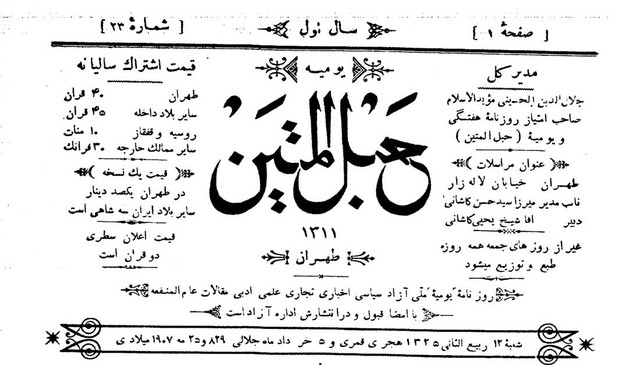 [ صفحهٔ ۱ ]
سال اول
[ شمارهٔ ۲۳ ]
مدیر کل
جلال‌الدین الحسینی مؤیدالاسلام
صاحب امتیاز روزنامهٔ هفتگی
و یومیهٔ ( حبل المتین )
( عنوان مراسلات )
طهران خیابان لاله زار
نائب مدیر میرزا سید حسن کاشانی
دبیر آقا شیخ یحیی کاشانی
غیر از روز های جمعه همه روزه
طبع و توزیع میشود
یومیه
حبل المتین
۱۳۱۱
طهران
قیمت اشتراک سالیانه
طهران ۴۰ قران
سایر بلاد داخله ۴۵ قران
روسیه و قفقاز ۱۰ منات
سایر ممالک خارجه ۳۰ فرانک
( قیمت یک نسخه )
در طهران یکصد دینار
سایر بلاد ایران سه شاهی است
قیمت اعلان سطری
دو قران است
روزنامهٔ یومیهٔ ملی آزاد سیاسی اخباری تجاری علمی ادبی مقالات عام المنفعه
با امضا قبول و در انتشارش اداره آزاد است
شنبهٔ ۱۲ ربیع الثانی ۱۳۲۵ هجری قمری و ۵ خرداد ماه جلالی ۸۲۹ و ۲۵ مه ۱۹۰۷ میلادی